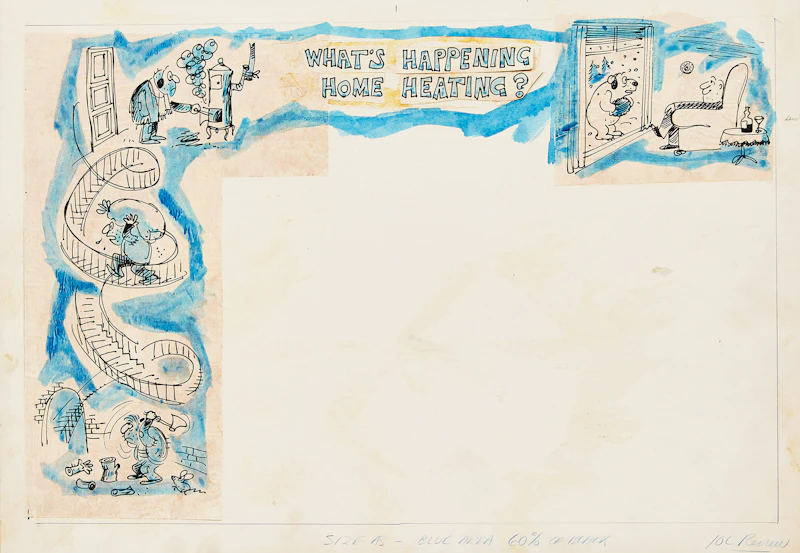 WHAT'S HAPPENING
HOME HEATING?
SIZE AS — BLUE AREA 60% OF BLACK